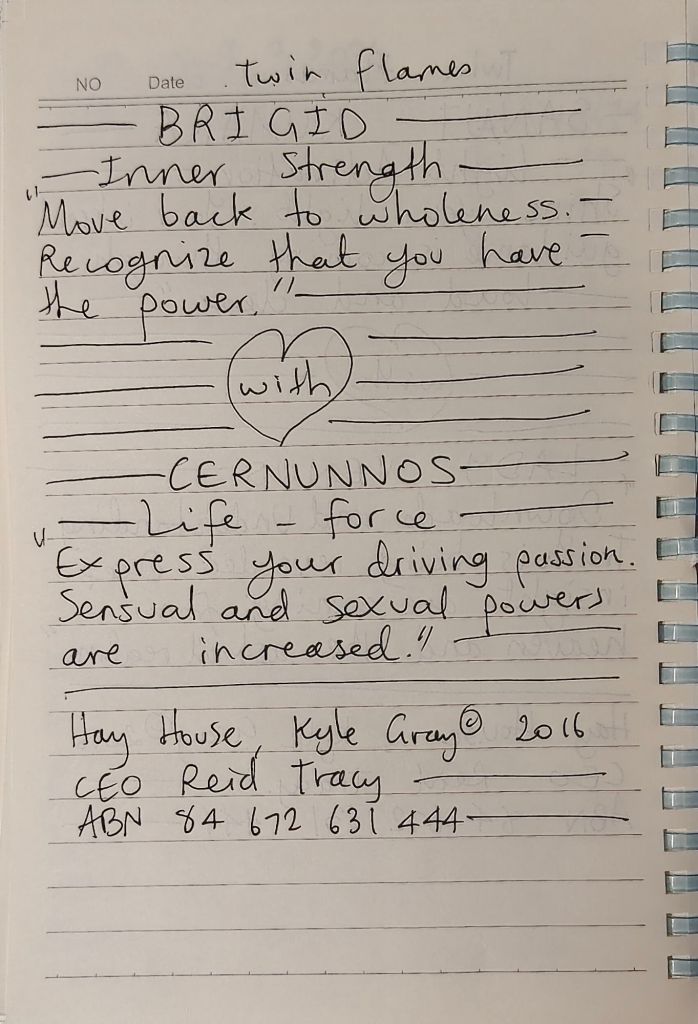 NO Date . twin flames
BRIGID
Inner Strength
"Move back to wholeness.
Recognize that you have
the power."
with
CERNUNNOS
Life - force
"Express your driving passion.
Sensual and sexual powers
are increased."
Hay House, Kyle Gray © 2016
CEO Reid Tracy
ABN 84 672 631 444